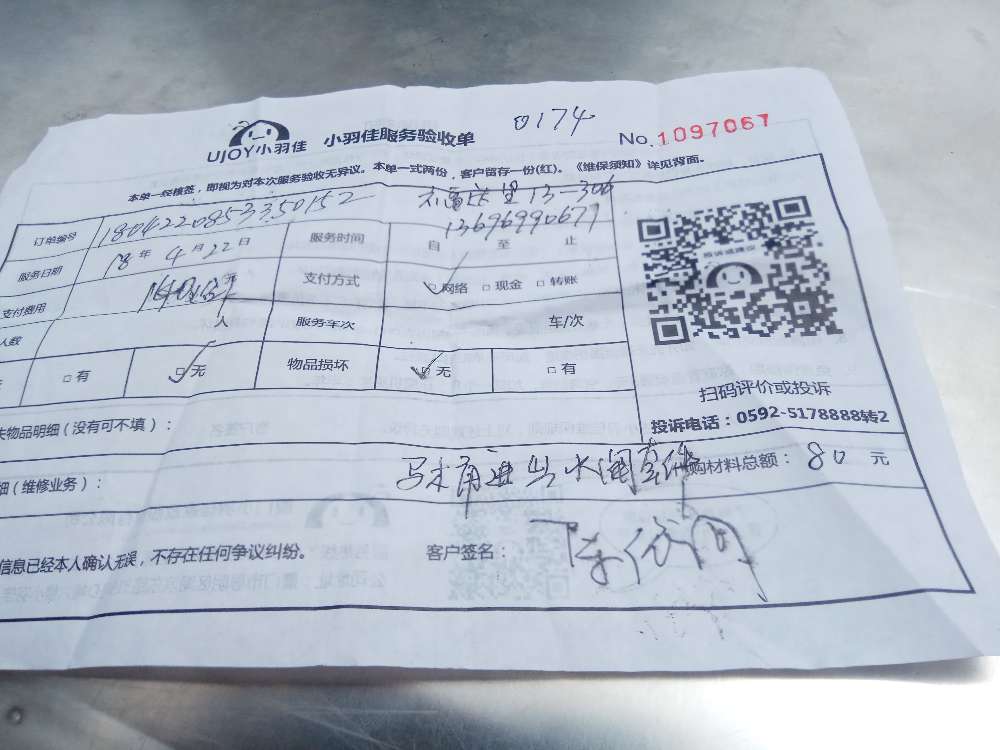 UJOY小羽佳 小羽佳服务验收单 0174 No.1097067
本单一经核签，即视为对本次服务验收无异议。本单一式两份，客户留存一份(红)。《维保须知》详见背面。
订单编号 1804220853350152 13-306
13696990677
服务日期 18年 4月22日 服务时间 自 至 止
支付费用 元 支付方式 □网络 □现金 □转账
人数 人 服务车次 车/次
□有 □无 物品损坏 □无 □有
扫码评价或投诉
投诉电话：0592-5178888转2
失物品明细（没有可不填）：
细（维修业务）： 马桶 进出水阀 购材料总额：80 元
信息已经本人确认无误，不存在任何争议纠纷。 客户签名：